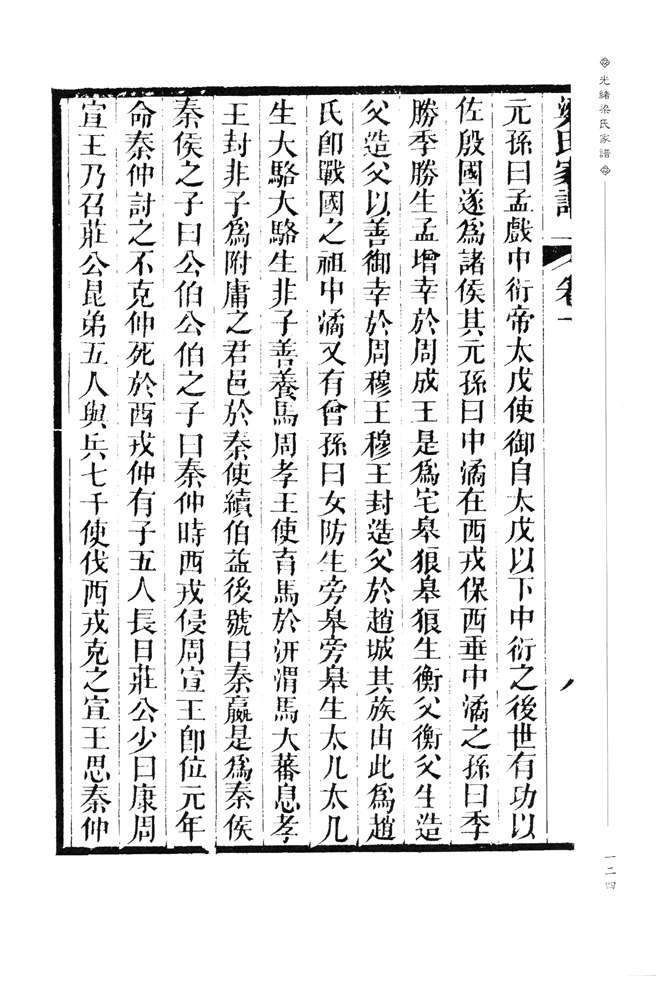 光緒梁氏家譜
一二四
梁氏家譜 卷一 八
元孫曰孟戲中衍帝太戊使御自太戊以下中衍之後世有功以
佐殷國遂爲諸侯其元孫曰中潏在西戎保西垂中潏之孫曰季
勝季勝生孟增幸於周成王是爲宅皋狼皋狼生衡父衡父生造
父造父以善御幸於周穆王穆王封造父於趙城其族由此爲趙
氏卽戰國之祖中潏又有曾孫曰女防生旁皋旁皋生太几太几
生大駱大駱生非子善養馬周孝王使育馬於汧渭馬大蕃息孝
王封非子爲附庸之君邑於秦使續伯益後號曰秦嬴是爲秦侯
秦侯之子曰公伯公伯之子曰秦仲時西戎侵周宣王卽位元年
命秦仲討之不克仲死於西戎仲有子五人長曰莊公少曰康周
宣王乃召莊公昆弟五人與兵七千使伐西戎克之宣王思秦仲